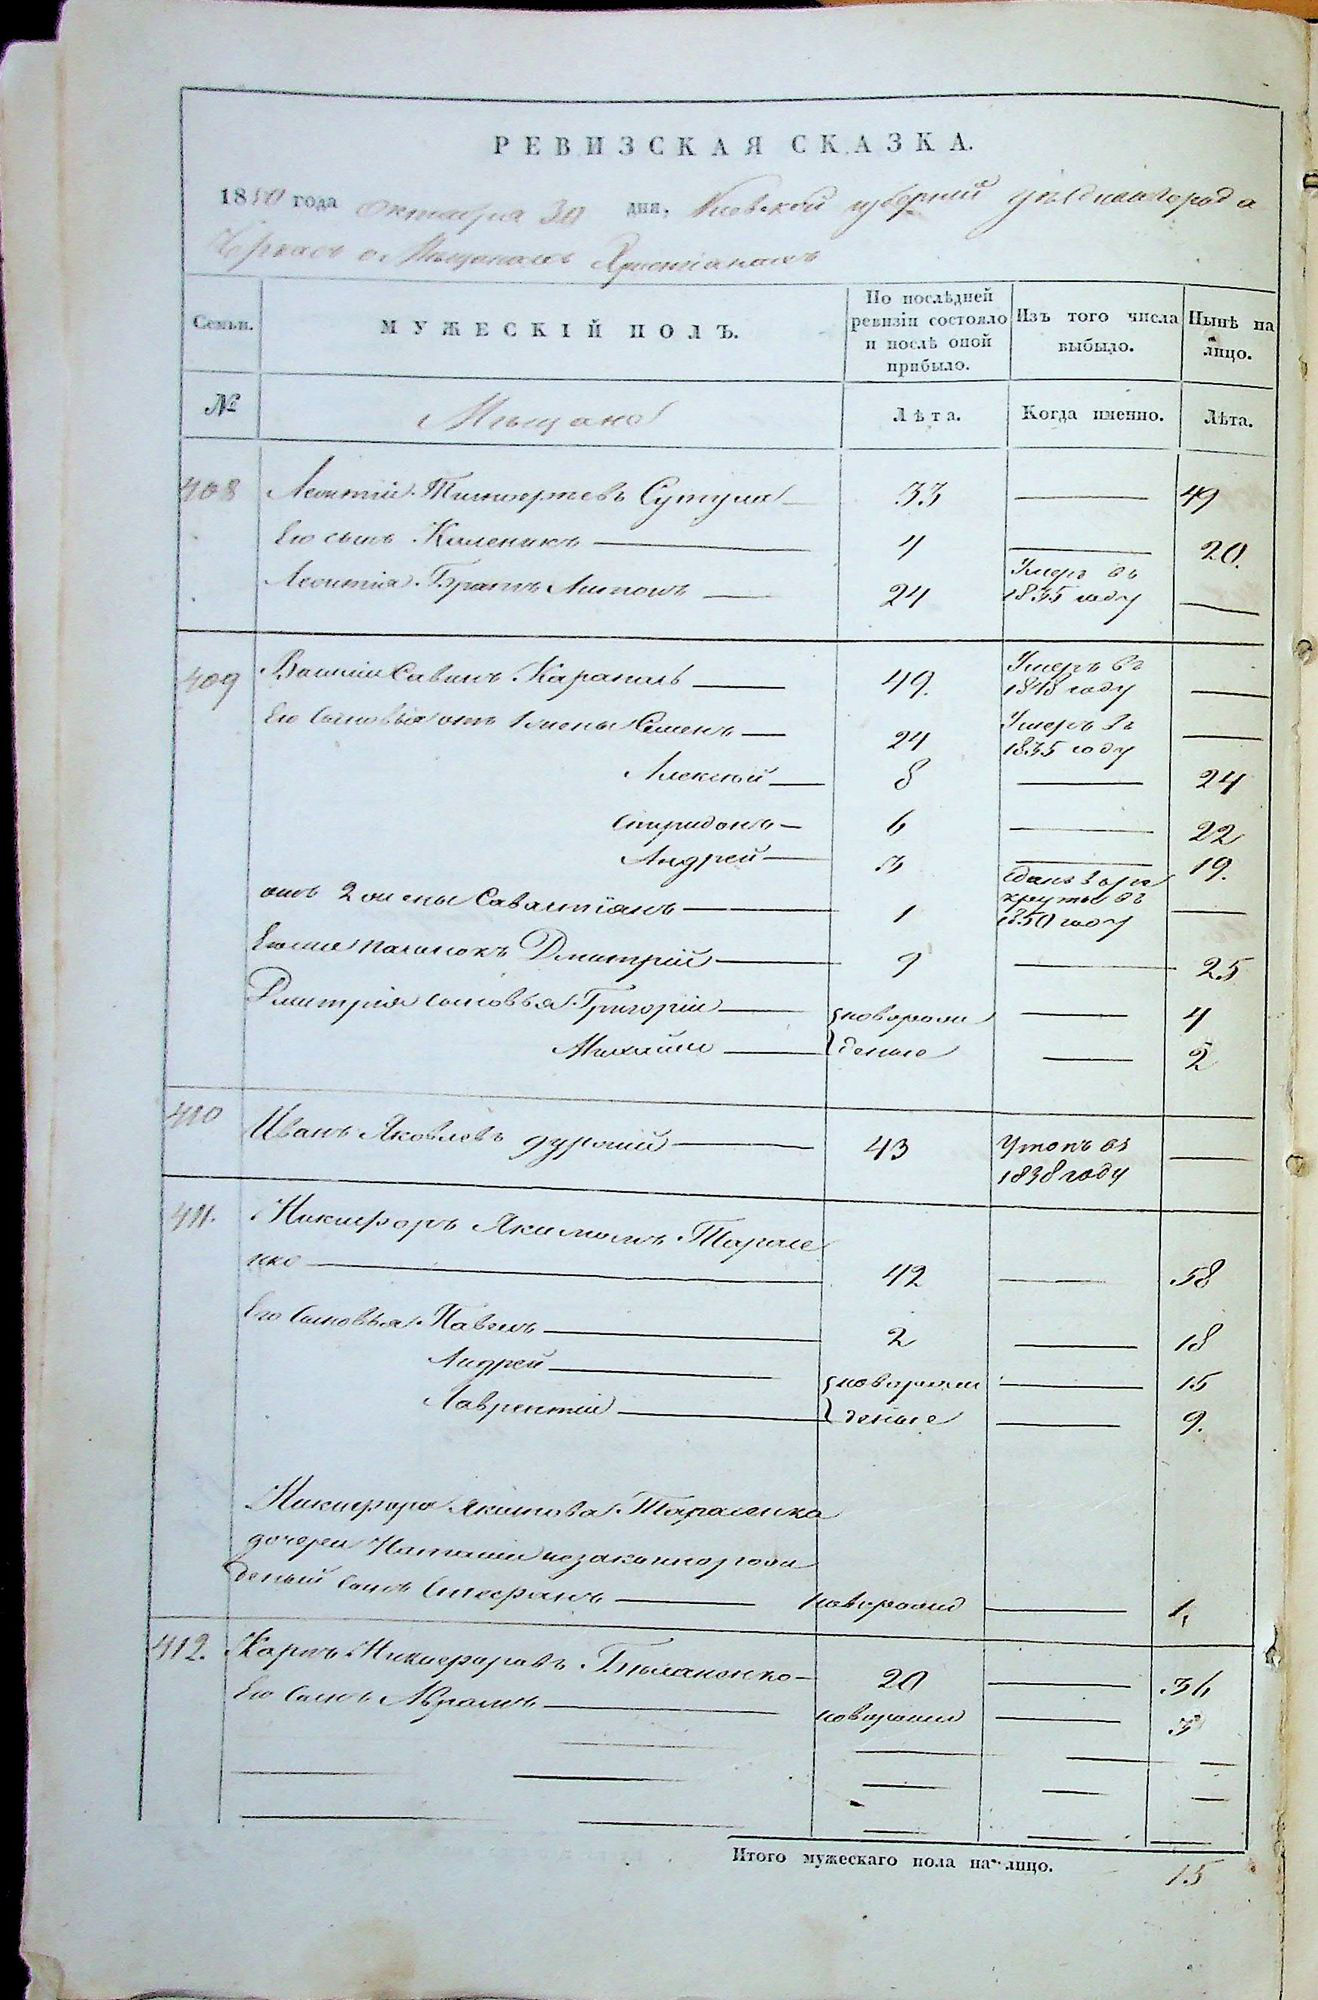 РЕВИЗСКАЯ СКАЗКА.
1850 года октября 30 дня, Киевской губернии уезднаго города
Черкасъ о Мещанахъ Христіанахъ
Семьи.
МУЖЕСКІЙ ПОЛЪ.
По послѣдней
ревизіи состояло
и послѣ оной
прибыло.
Изъ того числа
выбыло.
Нынѣ на
лицо.
№
Мещане
Лѣта.
Когда именно.
Лѣта.
408 Леонтій Тимофеевъ 33 49
Его сынъ Каленикъ 4 20.
Леонтія Братъ Антонъ 24 Умеръ въ
1835 году
409 Василій Савинъ 49. Умеръ въ
1848 году
Его сыновья отъ 1 жены Семенъ 24 Умеръ въ
1835 году
Алексѣй 8 24
Спиридонъ 6 22
Андрей 3 19.
отъ 2 жены Савастіянъ 1 сданъ въ ре
круты въ
1850 году
Дмитрій 9 25
Дмитрія сыновья Григорій новорож 4
Михайло деные 2
410 Иванъ Яковлевъ 43 Утопъ въ
1838 году
411. Никифоръ Якимовъ Тарасе
нко 42 58
Его сыновья Павелъ 2 18
Андрей новорож 15
Лаврентій деные 9.
Никифора Якимова Тарасенка
дочери Наталіи незаконнорож
деный сынъ Стефанъ новорожд 1.
412. Карпъ Никифоровъ 20 36
Его сынъ Абрамъ новорожд 3
Итого мужескаго пола на лицо. 15